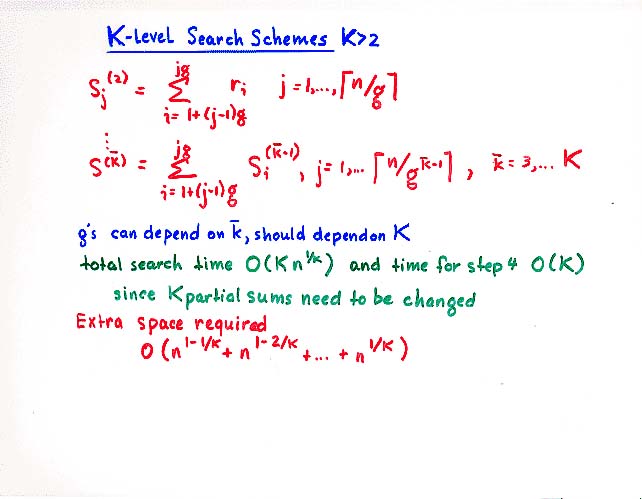 K-Level Search Schemes K>2
S_j^(2) = Σ_{i=1+(j-1)g}^{jg} r_i   j=1,...,⌈n/g⌉
⋮
S^(k̄) = Σ_{i=1+(j-1)g}^{jg} S_i^(k̄-1), j=1,... ⌈n/g^{k̄-1}⌉, k̄=3,... K
g's can depend on k̄, should depend on K
total search time O(Kn^{1/K}) and time for step 4 O(K)
since K partial sums need to be changed
Extra space required
O(n^{1-1/K} + n^{1-2/K} + ... + n^{1/K})